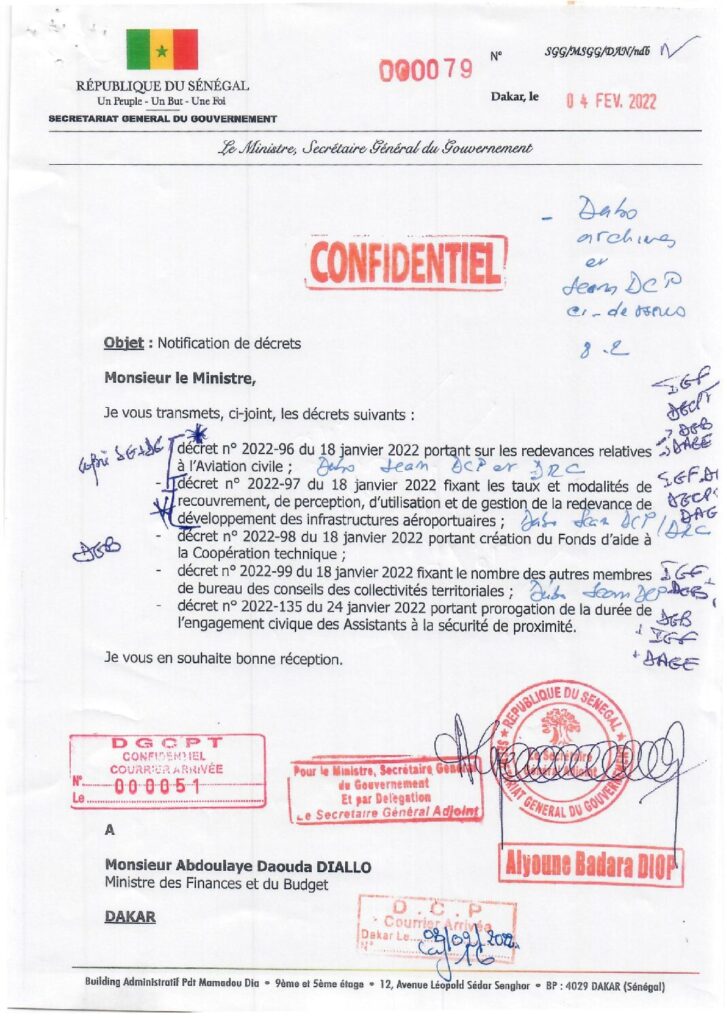 RÉPUBLIQUE DU SÉNÉGAL
Un Peuple - Un But - Une Foi
SECRETARIAT GENERAL DU GOUVERNEMENT
000079
N° SGG/MSGG/DAN/ndb
Dakar, le 04 FEV. 2022
Le Ministre, Secrétaire Général du Gouvernement
- Dabo
archives
et
Jean DCP
ci-dessous
8.2
CONFIDENTIEL
Objet : Notification de décrets
Monsieur le Ministre,
IGF
DGCPT
Je vous transmets, ci-joint, les décrets suivants :
DGB
DAGE
décret n° 2022-96 du 18 janvier 2022 portant sur les redevances relatives
à l'Aviation civile ; Dabo Jean DCP et DRC
- décret n° 2022-97 du 18 janvier 2022 fixant les taux et modalités de
recouvrement, de perception, d'utilisation et de gestion de la redevance de
développement des infrastructures aéroportuaires ; Dabo Jean DCP/DRC
DGB
- décret n° 2022-98 du 18 janvier 2022 portant création du Fonds d'aide à
la Coopération technique ;
- décret n° 2022-99 du 18 janvier 2022 fixant le nombre des autres membres IGF
de bureau des conseils des collectivités territoriales ; Dabo Jean DCP DGB
- décret n° 2022-135 du 24 janvier 2022 portant prorogation de la durée de DGB
l'engagement civique des Assistants à la sécurité de proximité. + IGF
+ DAGE
Je vous en souhaite bonne réception.
DGCPT
CONFIDENTIEL
COURRIER ARRIVÉE
N° 000051
Le
Pour le Ministre, Secrétaire Général
du Gouvernement
Et par Delegation
Le Secretaire Général Adjoint
REPUBLIQUE DU SENEGAL
Le Secrétaire
Général Adjoint
SECRETARIAT GENERAL DU GOUVERNEMENT
Alyoune Badara DIOP
A
Monsieur Abdoulaye Daouda DIALLO
Ministre des Finances et du Budget
DAKAR
D.C.P
Courrier Arrivée
Dakar Le
N° 16
Building Administratif Pdt Mamadou Dia • 9ème et 5ème étage • 12, Avenue Léopold Sédar Senghor • BP : 4029 DAKAR (Sénégal)